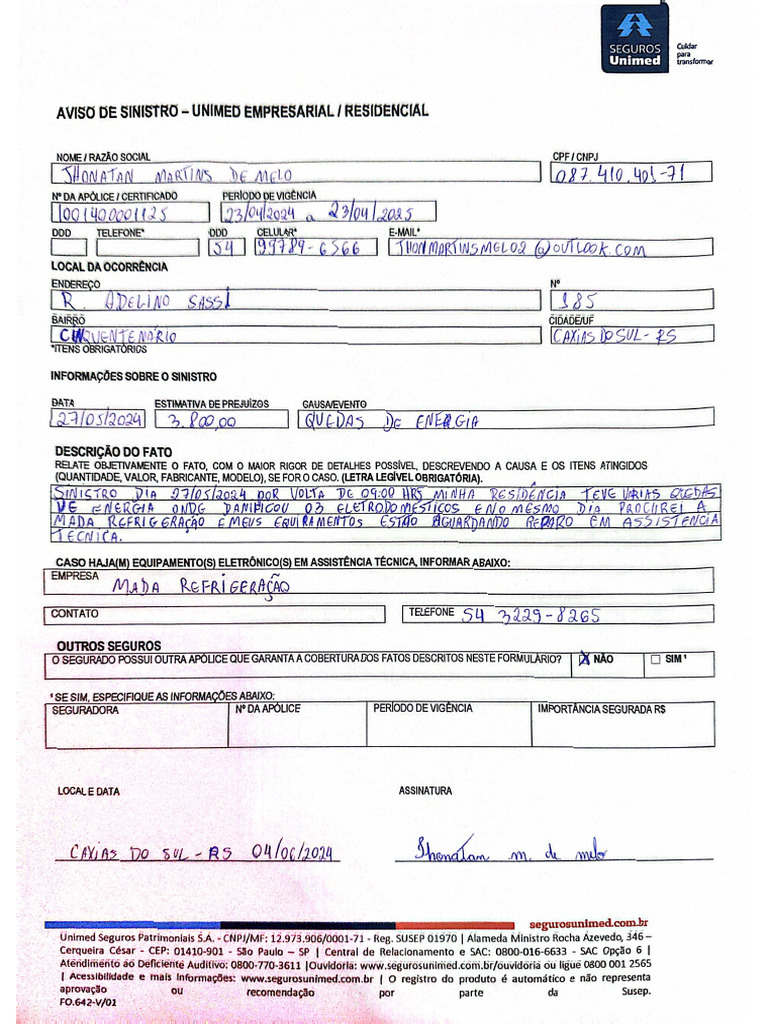 SEGUROS
Unimed
Cuidar
para
transformar
AVISO DE SINISTRO – UNIMED EMPRESARIAL / RESIDENCIAL
NOME / RAZÃO SOCIAL CPF / CNPJ
JHONATAN MARTINS DE MELO 087.410.401-71
Nº DA APÓLICE / CERTIFICADO PERÍODO DE VIGÊNCIA
001400001125 23/04/2024 a 23/04/2025
DDD TELEFONE* DDD CELULAR* E-MAIL*
54 99789-6366 JHONMARTINSMELO2@OUTLOOK.COM
LOCAL DA OCORRÊNCIA
ENDEREÇO Nº
R. ADELINO SASSI 985
BAIRRO CIDADE/UF
CINQUENTENÁRIO CAXIAS DO SUL - RS
*ITENS OBRIGATÓRIOS
INFORMAÇÕES SOBRE O SINISTRO
DATA ESTIMATIVA DE PREJUÍZOS CAUSA/EVENTO
27/05/2024 3.800,00 QUEDAS DE ENERGIA
DESCRIÇÃO DO FATO
RELATE OBJETIVAMENTE O FATO, COM O MAIOR RIGOR DE DETALHES POSSÍVEL, DESCREVENDO A CAUSA E OS ITENS ATINGIDOS
(QUANTIDADE, VALOR, FABRICANTE, MODELO), SE FOR O CASO. (LETRA LEGÍVEL OBRIGATÓRIA).
SINISTRO DIA 27/05/2024 POR VOLTA DE 09:00 HRS MINHA RESIDÊNCIA TEVE VÁRIAS QUEDAS
DE ENERGIA ONDE DANIFICOU 03 ELETRODOMÉSTICOS E NO MESMO DIA PROCUREI A
MADA REFRIGERAÇÃO E MEUS EQUIPAMENTOS ESTÃO AGUARDANDO REPARO EM ASSISTENCIA
TÉCNICA.
CASO HAJA(M) EQUIPAMENTO(S) ELETRÔNICO(S) EM ASSISTÊNCIA TÉCNICA, INFORMAR ABAIXO:
EMPRESA
MADA REFRIGERAÇÃO
CONTATO TELEFONE 54 3229-8265
OUTROS SEGUROS
O SEGURADO POSSUI OUTRA APÓLICE QUE GARANTA A COBERTURA DOS FATOS DESCRITOS NESTE FORMULÁRIO? X NÃO SIM ¹
¹ SE SIM, ESPECIFIQUE AS INFORMAÇÕES ABAIXO:
SEGURADORA Nº DA APÓLICE PERÍODO DE VIGÊNCIA IMPORTÂNCIA SEGURADA R$
LOCAL E DATA ASSINATURA
CAXIAS DO SUL - RS 04/06/2024 Jhonatan m. de melo
segurosunimed.com.br
Unimed Seguros Patrimoniais S.A. - CNPJ/MF: 12.973.906/0001-71 - Reg. SUSEP 01970 | Alameda Ministro Rocha Azevedo, 346 –
Cerqueira César - CEP: 01410-901 - São Paulo – SP | Central de Relacionamento e SAC: 0800-016-6633 - SAC Opção 6 |
Atendimento ao Deficiente Auditivo: 0800-770-3611 |Ouvidoria: www.segurosunimed.com.br/ouvidoria ou ligue 0800 001 2565
| Acessibilidade e mais Informações: www.segurosunimed.com.br | O registro do produto é automático e não representa
aprovação ou recomendação por parte da Susep.
FO.642-V/01